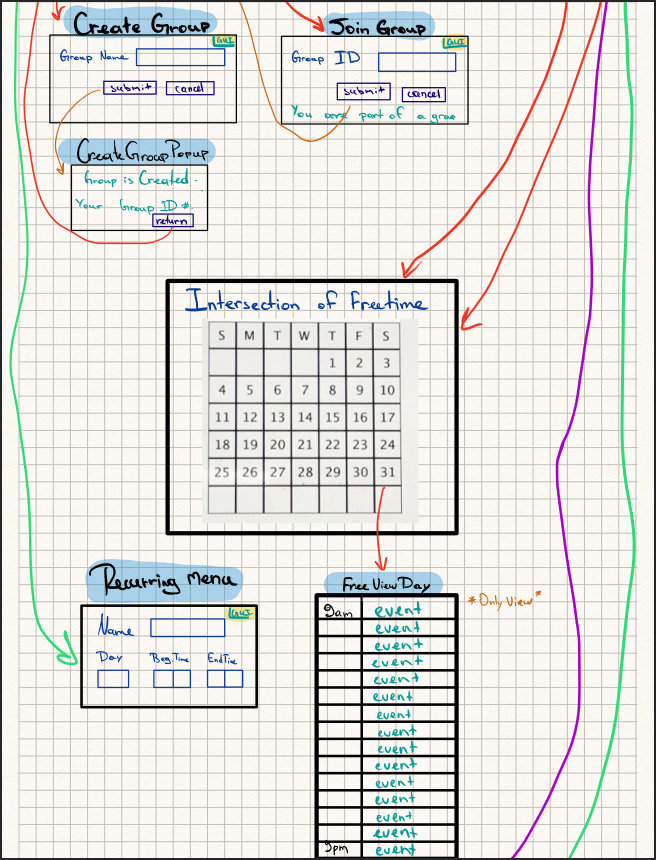 Create Group
GUI
Group Name
submit cancel
Join Group
GUI
Group ID
submit cancel
You are part of a group
CreateGroupPopup
Group is Created.
Your Group ID #.
return
Intersection of Freetime
S M T W T F S
1 2 3
4 5 6 7 8 9 10
11 12 13 14 15 16 17
18 19 20 21 22 23 24
25 26 27 28 29 30 31
Recurring Menu
GUI
Name
Day Beg.Time EndTime
Free View Day
*Only View*
9am event
event
event
event
event
event
event
event
event
event
event
event
event
event
9pm event